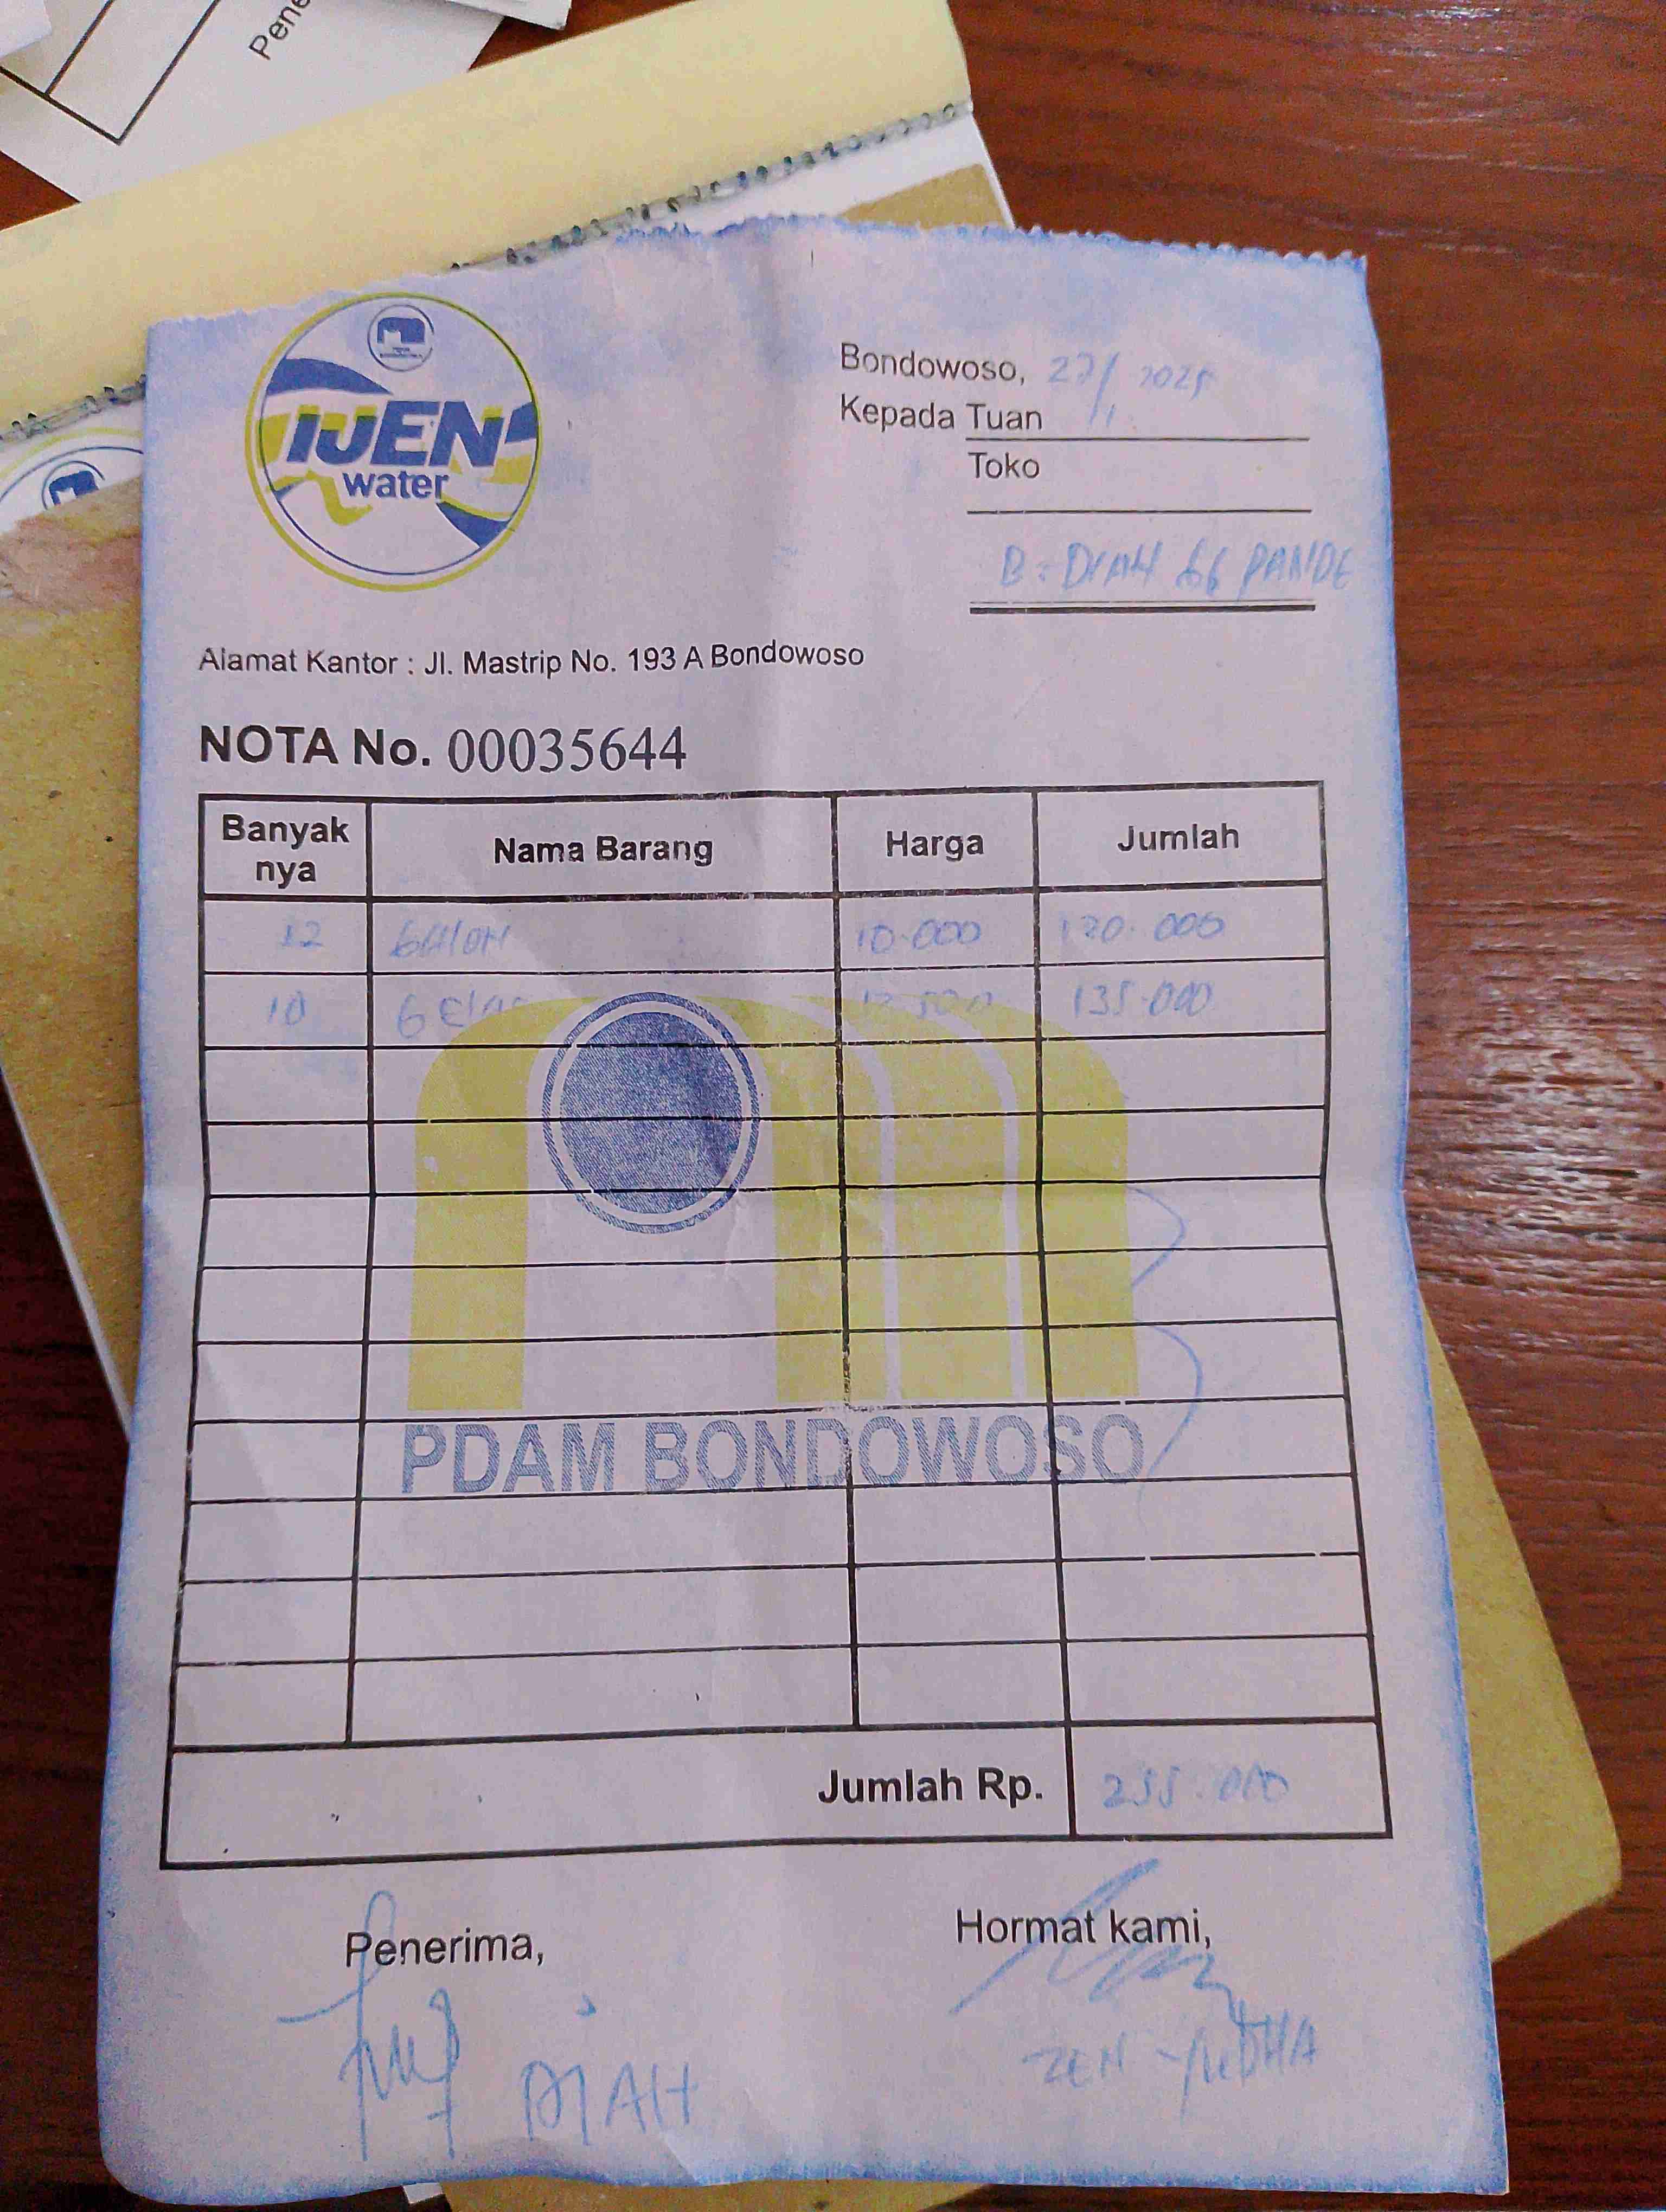 Pene
IJEN
water
Bondowoso, 27/ 2025
Kepada Tuan 11
Toko
B. DIAH GG PANDE
Alamat Kantor : Jl. Mastrip No. 193 A Bondowoso
NOTA No. 00035644
Banyak nya Nama Barang Harga Jumlah
12 GALON 10.000 120.000
10 GELAS 13.500 135.000
PDAM BONDOWOSO
Jumlah Rp. 255.000
Penerima, Hormat kami,
DIAH ZEN YUDHA